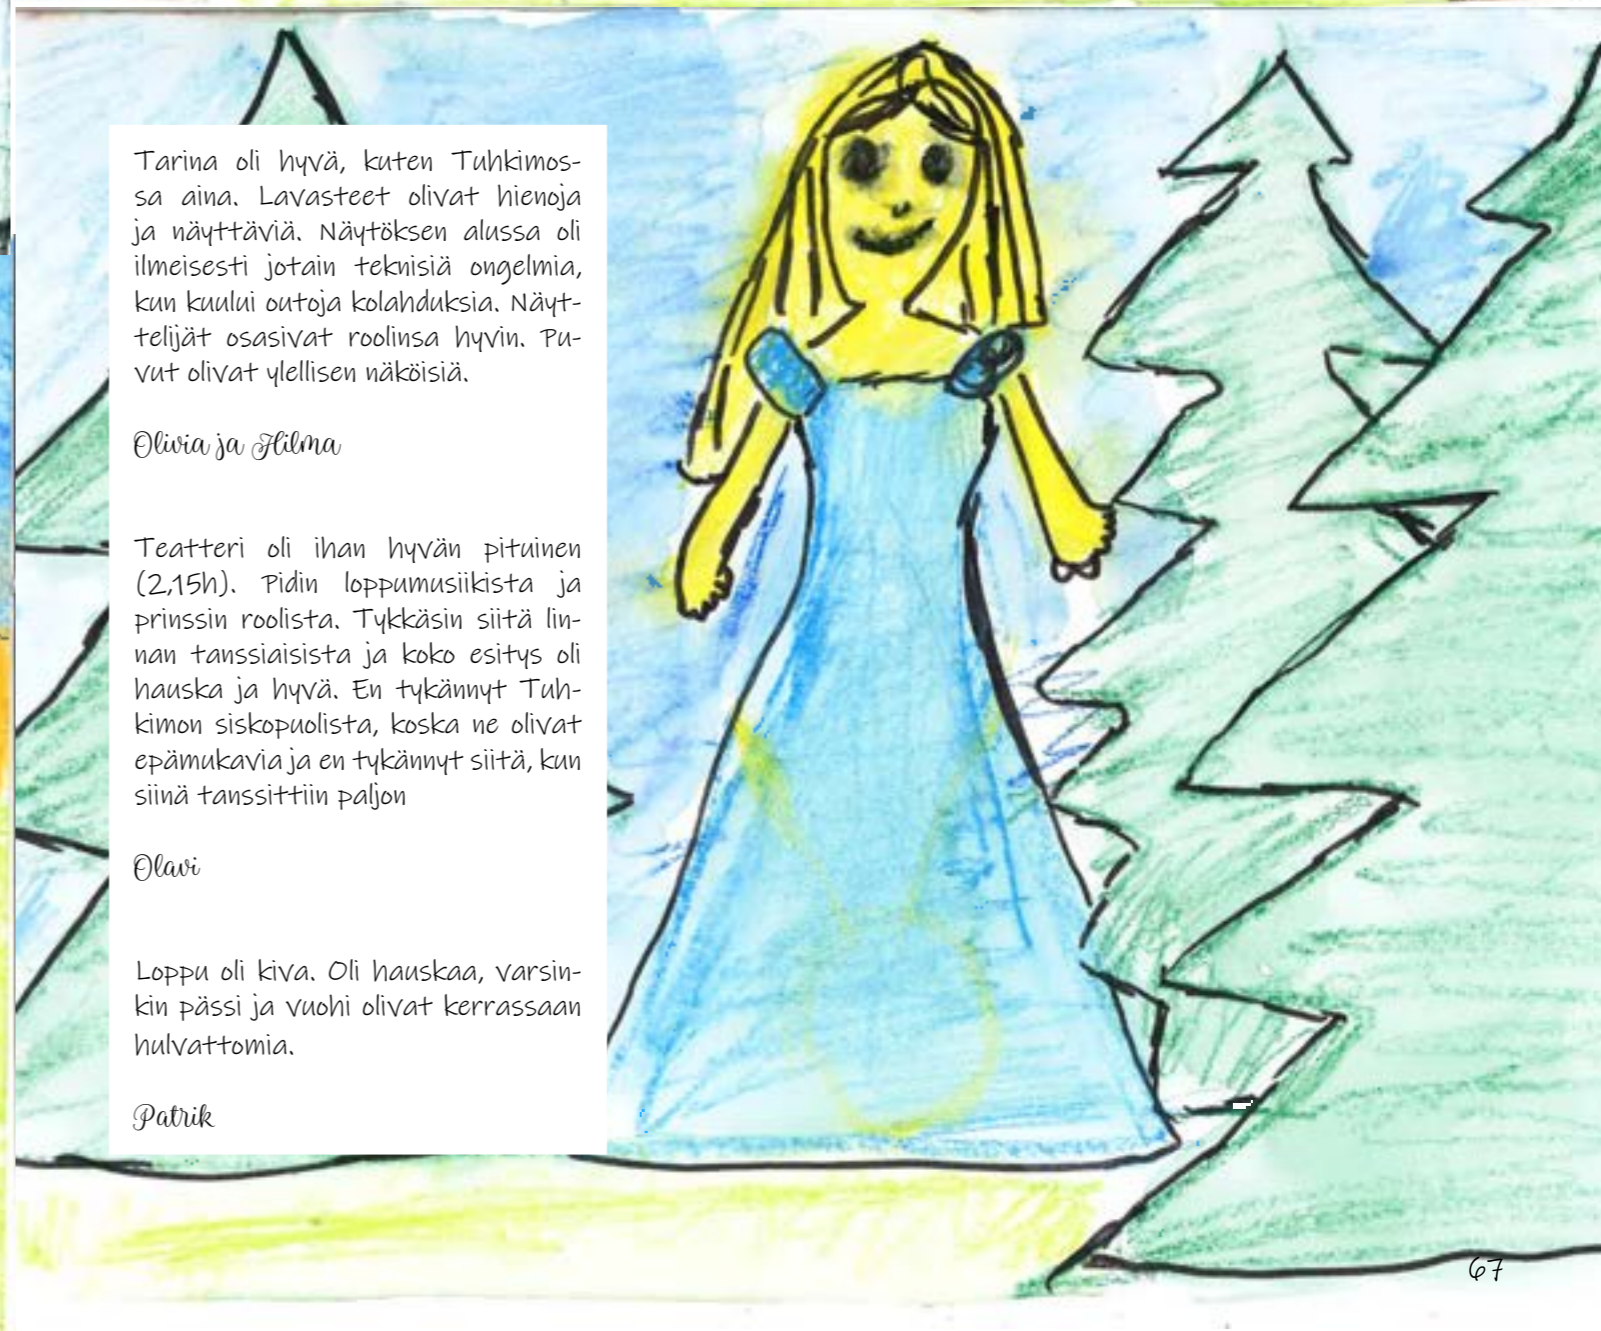 Tarina oli hyvä, kuten Tuhkimos-
sa aina. Lavasteet olivat hienoja
ja näyttäviä. Näytöksen alussa oli
ilmeisesti jotain teknisiä ongelmia,
kun kuului outoja kolahduksia. Näyt-
telijät osasivat roolinsa hyvin. Pu-
vut olivat ylellisen näköisiä.
Olivia ja Hilma
Teatteri oli ihan hyvän pituinen
(2,15h). Pidin loppumusiikista ja
prinssin roolista. Tykkäsin siitä lin-
nan tanssiaisista ja koko esitys oli
hauska ja hyvä. En tykännyt Tuh-
kimon siskopuolista, koska ne olivat
epämukavia ja en tykännyt siitä, kun
siinä tanssittiin paljon
Olavi
Loppu oli kiva. Oli hauskaa, varsin-
kin pässi ja vuohi olivat kerrassaan
hulvattomia.
Patrik
67